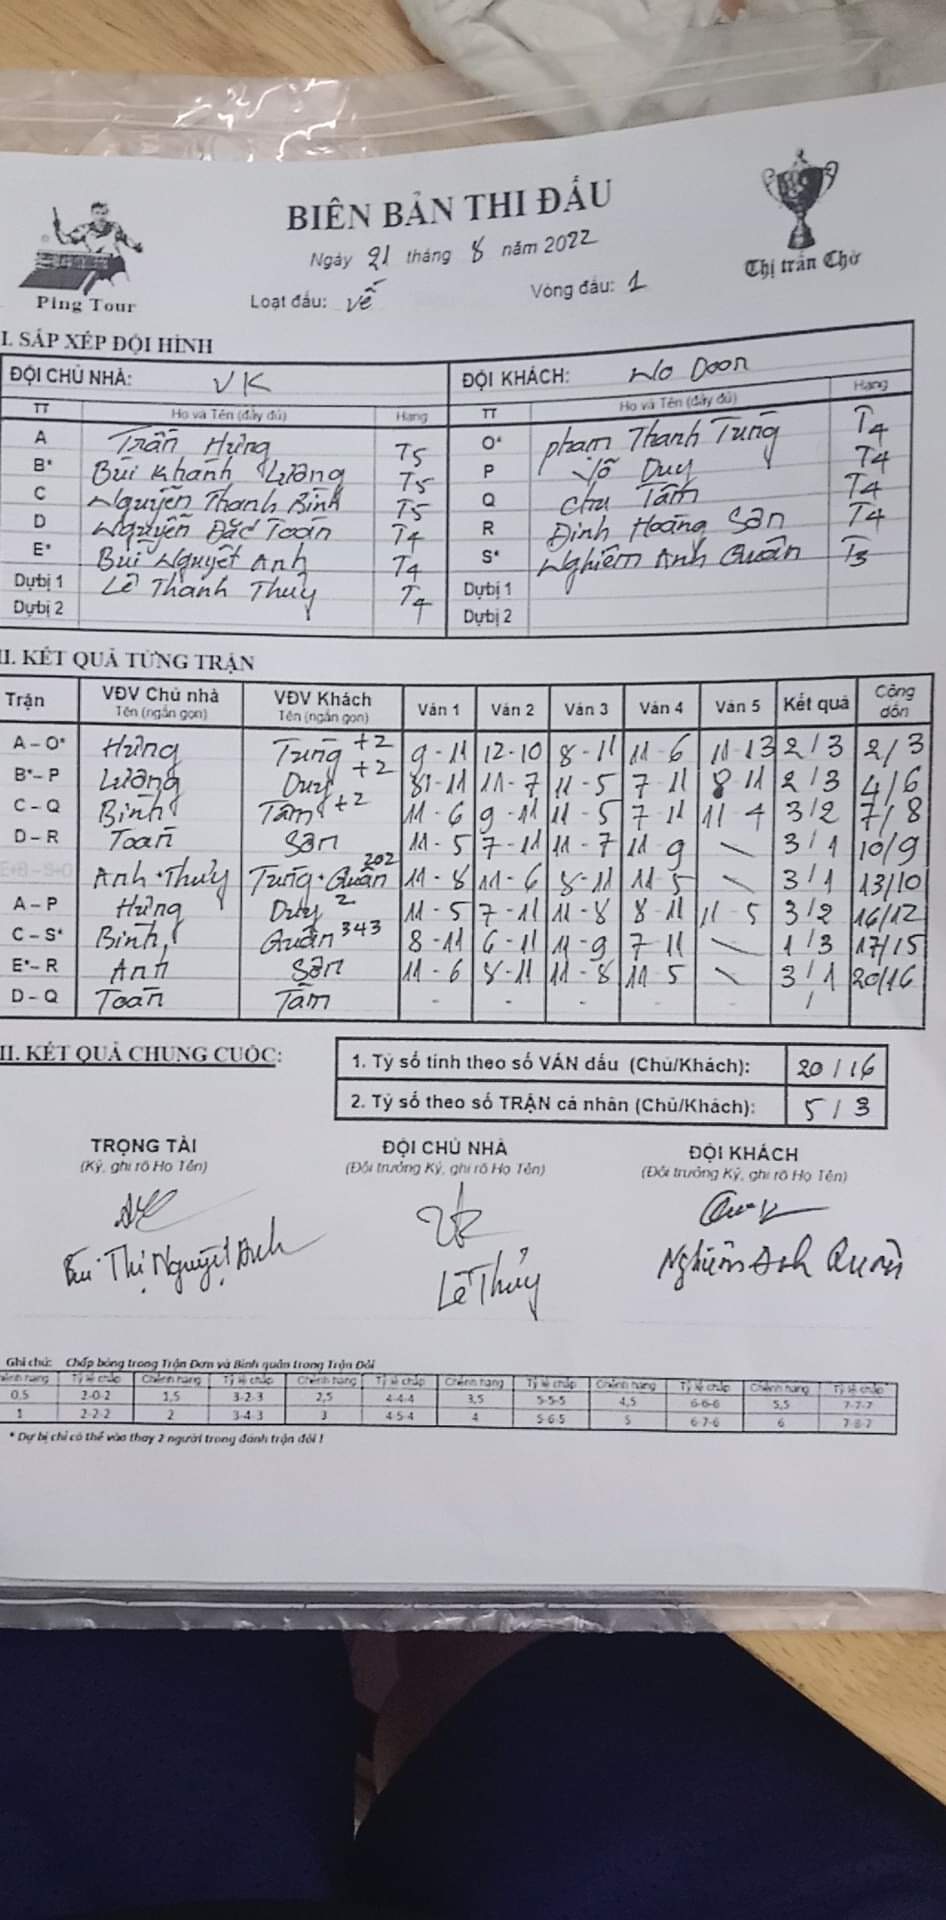 BIÊN BẢN THI ĐẤU
Ngày 21 tháng 8 năm 2022
Ping Tour
Thị trấn Chờ
Loạt đấu: Về Vòng đấu: 1
I. SẮP XẾP ĐỘI HÌNH
ĐỘI CHỦ NHÀ: VK ĐỘI KHÁCH: Wo Door
TT Họ và Tên (đầy đủ) Hạng TT Họ và Tên (đầy đủ) Hạng
A Trần Hưng T5 O* Phạm Thanh Tùng T4
B* Bùi Khánh Lương T5 P Võ Duy T4
C Nguyễn Thanh Bình T5 Q Chu Tâm T4
D Nguyễn Đắc Toàn T4 R Đinh Hoàng Sơn T4
E* Bùi Nguyệt Anh T4 S* Nghiêm Anh Quân T3
Dự bị 1 Lê Thanh Thuỷ T4 Dự bị 1
Dự bị 2 Dự bị 2
II. KẾT QUẢ TỪNG TRẬN
Trận VĐV Chủ nhà Tên (ngắn gọn) VĐV Khách Tên (ngắn gọn) Ván 1 Ván 2 Ván 3 Ván 4 Ván 5 Kết quả Cộng dồn
A – O* Hưng Tùng +2 9 - 11 12 - 10 8 - 11 11 - 6 11 - 13 2 / 3 2 / 3
B* – P Lương Duy +2 8 - 11 11 - 7 11 - 5 7 - 11 8 - 11 2 / 3 4 / 6
C – Q Bình Tâm +2 11 - 6 9 - 11 11 - 5 7 - 11 11 - 4 3 / 2 7 / 8
D – R Toàn Sơn 11 - 5 7 - 11 11 - 7 11 - 9 \ 3 / 1 10 / 9
Anh + Thuỷ Tùng + Quân 202 11 - 8 11 - 6 8 - 11 11 - 5 \ 3 / 1 13 / 10
A – P Hưng Duy 2 11 - 5 7 - 11 11 - 8 8 - 11 11 - 5 3 / 2 16 / 12
C – S* Bình Quân 343 8 - 11 6 - 11 11 - 9 7 - 11 \ 1 / 3 17 / 15
E* – R Anh Sơn 11 - 6 8 - 11 11 - 8 11 - 5 \ 3 / 1 20/16
D – Q Toàn Tâm - - - - - /
II. KẾT QUẢ CHUNG CUỘC:
1. Tỷ số tính theo số VÁN đấu (Chủ/Khách): 20 / 16
2. Tỷ số theo số TRẬN cá nhân (Chủ/Khách): 5 / 3
TRỌNG TÀI ĐỘI CHỦ NHÀ ĐỘI KHÁCH
(Ký, ghi rõ Họ Tên) (Đội trưởng Ký, ghi rõ Họ Tên) (Đội trưởng Ký, ghi rõ Họ Tên)
Bùi Thị Nguyệt Anh Lê Thủy Nghiêm Anh Quân
Ghi chú: Chấp bóng trong Trận Đơn và Bình quân trong Trận Đôi
Chênh hạng Tỷ lệ chấp Chênh hạng Tỷ lệ chấp Chênh hạng Tỷ lệ chấp Chênh hạng Tỷ lệ chấp Chênh hạng Tỷ lệ chấp Chênh hạng Tỷ lệ chấp
0.5 2-0-2 1,5 3-2-3 2,5 4-4-4 3,5 5-5-5 4,5 6-6-6 5,5 7-7-7
1 2-2-2 2 3-4-3 3 4-5-4 4 5-6-5 5 6-7-6 6 7-8-7
* Dự bị chỉ có thể vào thay 2 người trong đánh trận đôi !